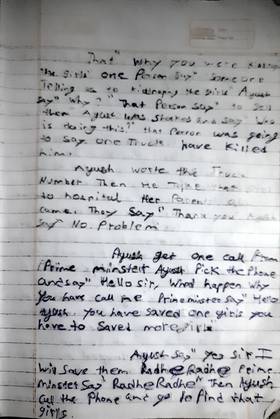 That" Why you were
the Girls" one Person Say" Someone
Telling us to kidnaping the Girls" Ayush
Say" Why? "That Person Say" to Sell
them Ayush was Shocked and Say "Who
is doing this." that Person was going
to Say one Truck have Killed
him.
Ayush wrote the Truck
Number. Then He Take that
to hospital Her Parents
came. They Say" Thank you Ayush
say" No. Problem
Ayush get one call from
Prime minstert Ayush Pick the Phone
and say" Hello sir, What happen why
you have call me Prime minister say" Hello
Ayush. you have saved one girls you
have to Saved more girls
Ayush Say" Yes Sir I
will Save them Radhe Radhe Prime
minster Say" Radhe Radhe" Then Ayush
call the Phone and go to find that
girls